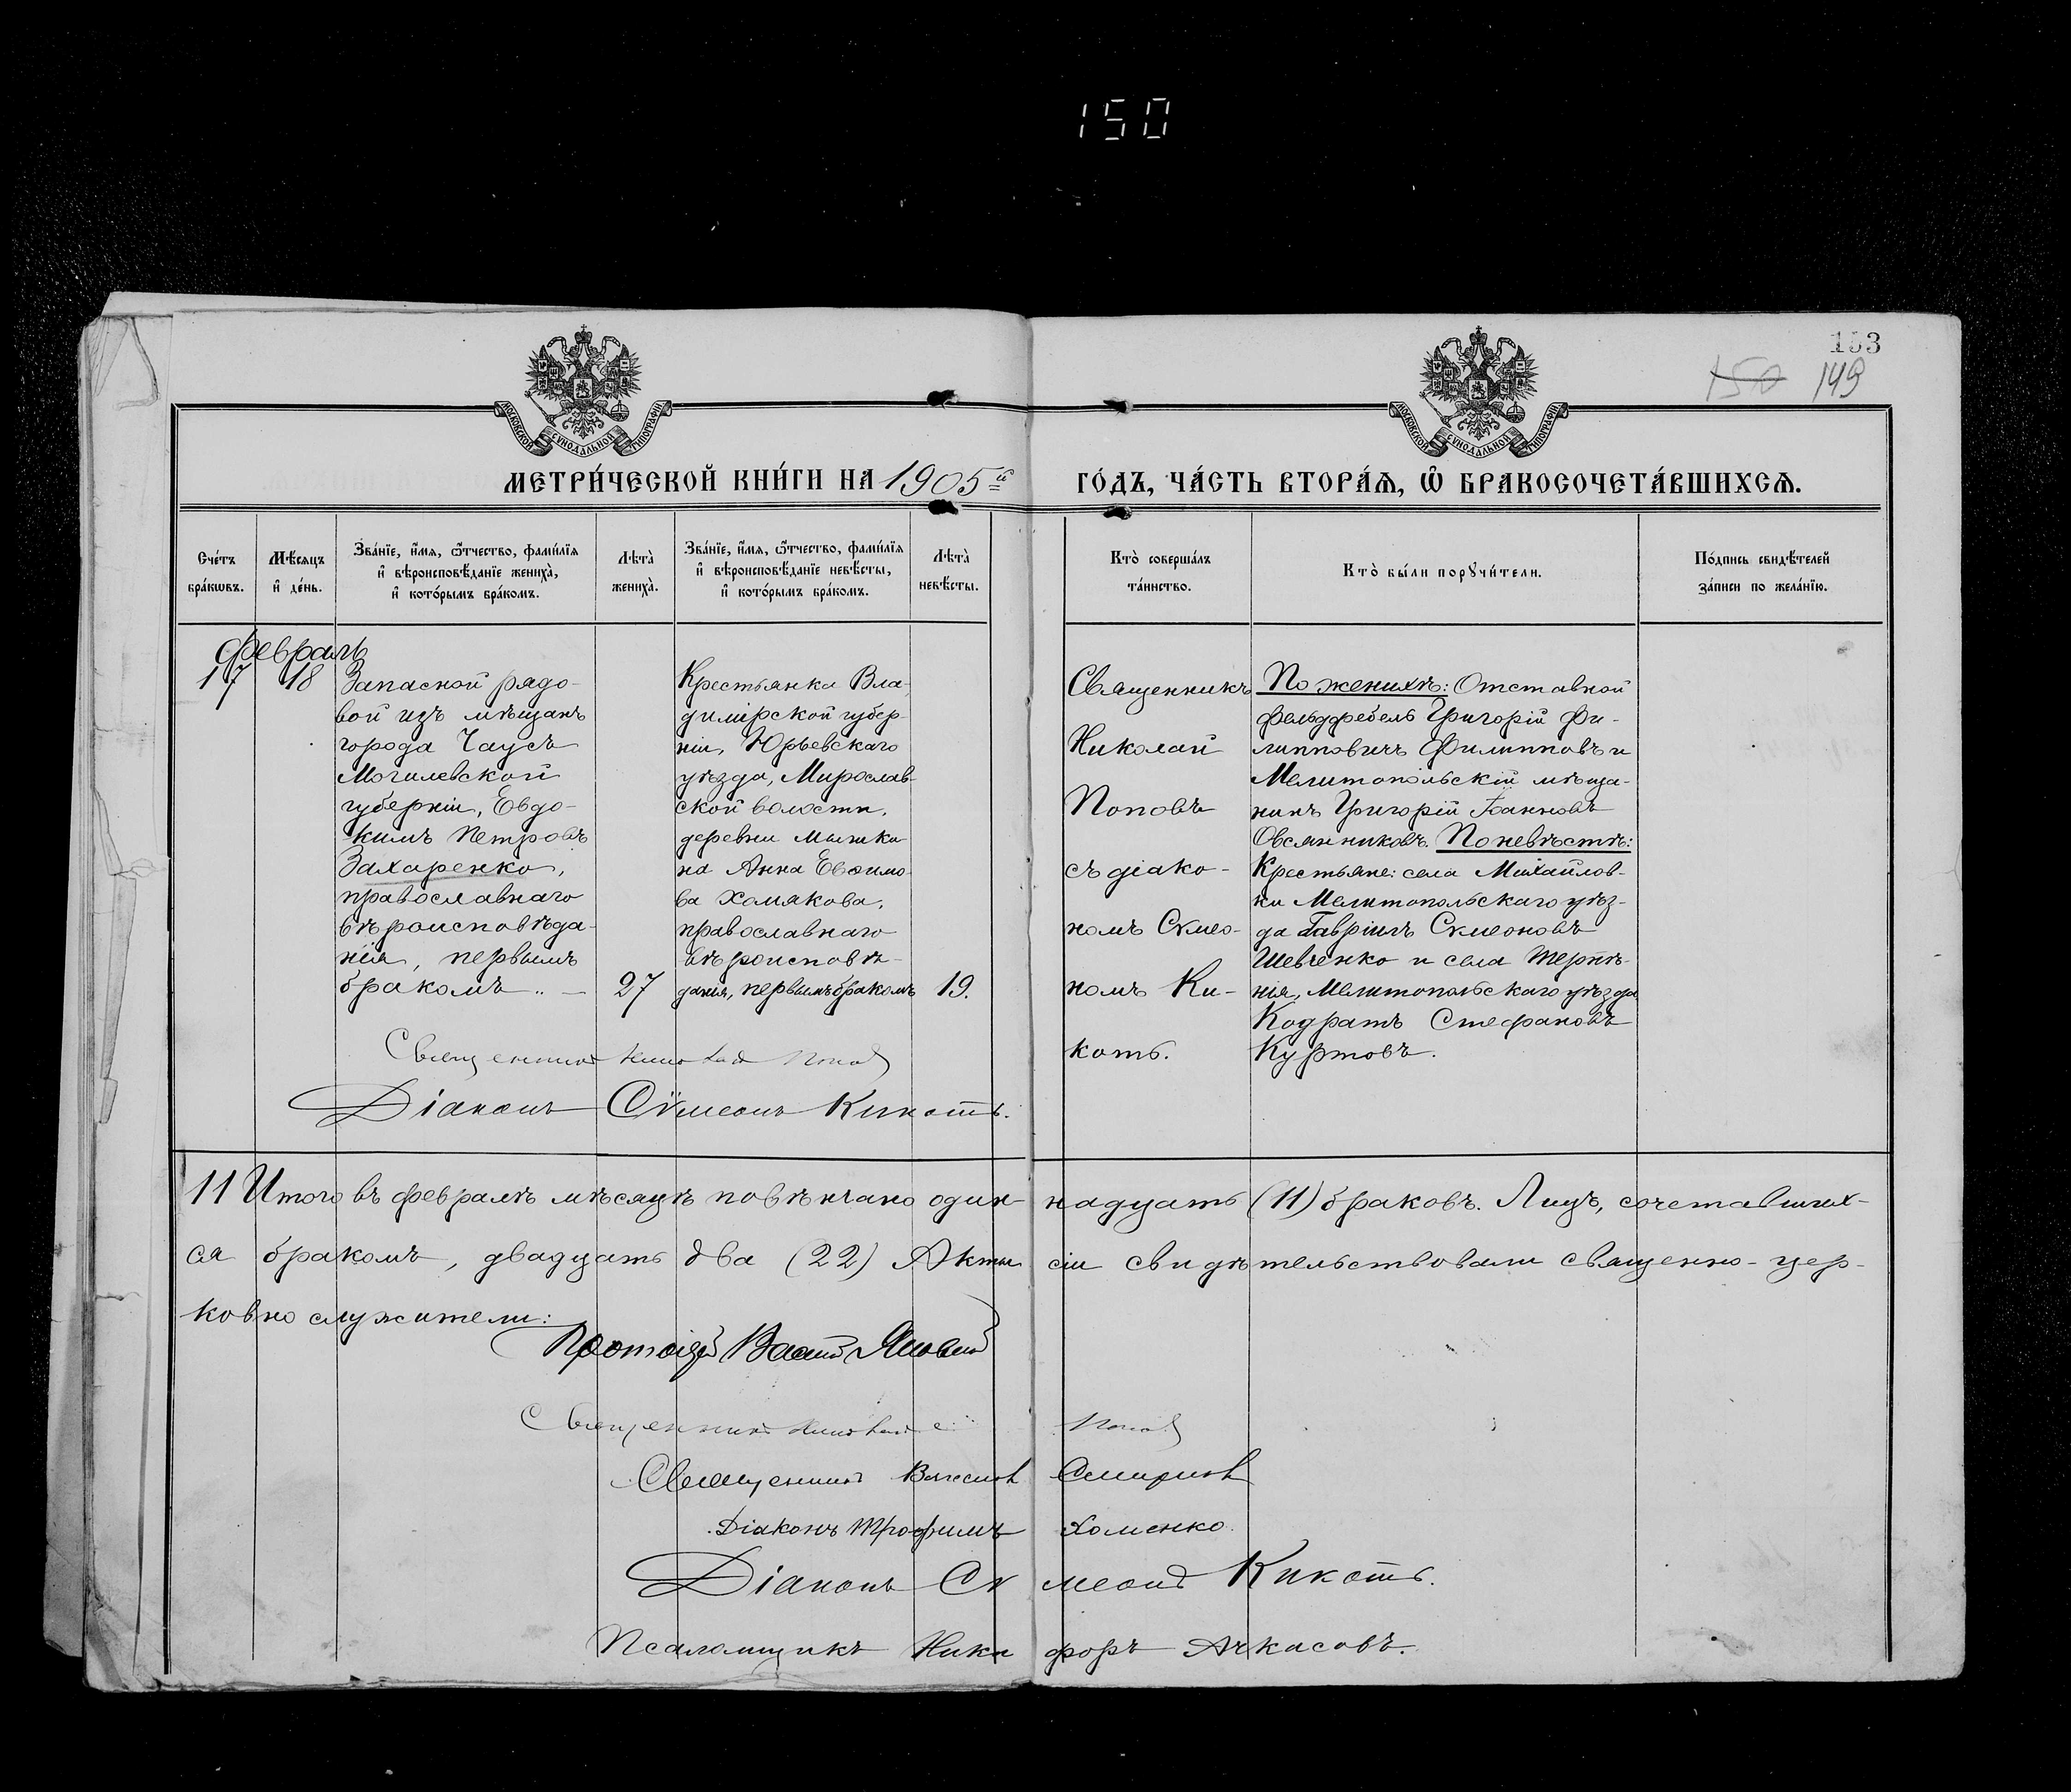 150
153
150 149
МОСКОВСКОЙ СѴНОДАЛЬНОЙ ТИПОГРАФІИ
МОСКОВСКОЙ СѴНОДАЛЬНОЙ ТИПОГРАФІИ
МЕТРИ́ЧЕСКОЙ КНИ́ГИ НА 1905й ГО́ДЪ, ЧА́СТЬ ВТОРА́Ѧ, Ѽ БРАКОСОЧЕТА́ВШИХСѦ.
Сче́тъ
бра́кωвъ.
Мѣ́сяцъ
и҆ де́нь.
Зва́нїе, и҆́мѧ, ѻ҆́тчество, фамѝлїѧ
и҆ вѣроисповѣ́данїе жениха̀,
и҆ кото́рымъ бра́комъ.
Лѣ́та̀
жениха̀.
Зва́нїе, и҆́мѧ, ѻ҆́тчество, фамѝлїѧ
и҆ вѣроисповѣ́данїе невѣ́сты,
и҆ кото́рымъ бра́комъ.
Лѣ́та̀
невѣ́сты.
Кто̀ соверша́лъ
та́инство.
Кто̀ бы́ли порꙋчи́тели.
По́дпись свидѣ́телей
за́писи по жела́нїю.
Февраль
17 18
Запасной рядо-
вой изъ мѣщанъ
города Чаусъ
Могилевской
губерніи, Евдо-
кимъ Петровъ
Захаренко,
православнаго
вѣроисповѣда-
нія, первымъ
бракомъ. —
27
Крестьянка Вла-
димірской губер-
ніи, Юрьевскаго
уѣзда, Мирослав-
ской волости,
деревни Мышки-
на Анна Евѳимо-
ва Хомякова,
православнаго
вѣроисповѣ-
данія, первымъ бракомъ
19.
Священникъ
Николай
Поповъ
съ діако-
номъ Сѵмео-
номъ Ки-
коть.
По женихѣ: Отставной
фельдфебель Григорій Фи-
липповичъ Филипповъ и
Мелитопольскій мѣща-
нинъ Григорій Іоанновъ
Овсянниковъ. По невѣстѣ:
Крестьяне: села Михайлов-
ки Мелитопольскаго уѣз-
да Гавріилъ Сѵмеоновъ
Шевченко и села Терпѣ-
нія, Мелитопольскаго уѣзда
Кодратъ Стефановъ
Куртовъ.
Священникъ Николай Поповъ
Діаконъ Сѵмеонъ Кикоть.
11 Итого въ февралѣ мѣсяцѣ повѣнчано один- надцать (11) браковъ. Лицъ, сочетавших-
ся бракомъ, двадцать два (22) Акты сіи свидѣтельствовали священно-цер-
ковно служители:
Протоіерей
Священникъ Николай Поповъ
Священникъ Вячеслав Смирнов
Діаконъ Трофимъ Хоменко.
Діаконъ Сѵ меонъ Кикоть.
Псаломщикъ Ники форъ Ачкасовъ.